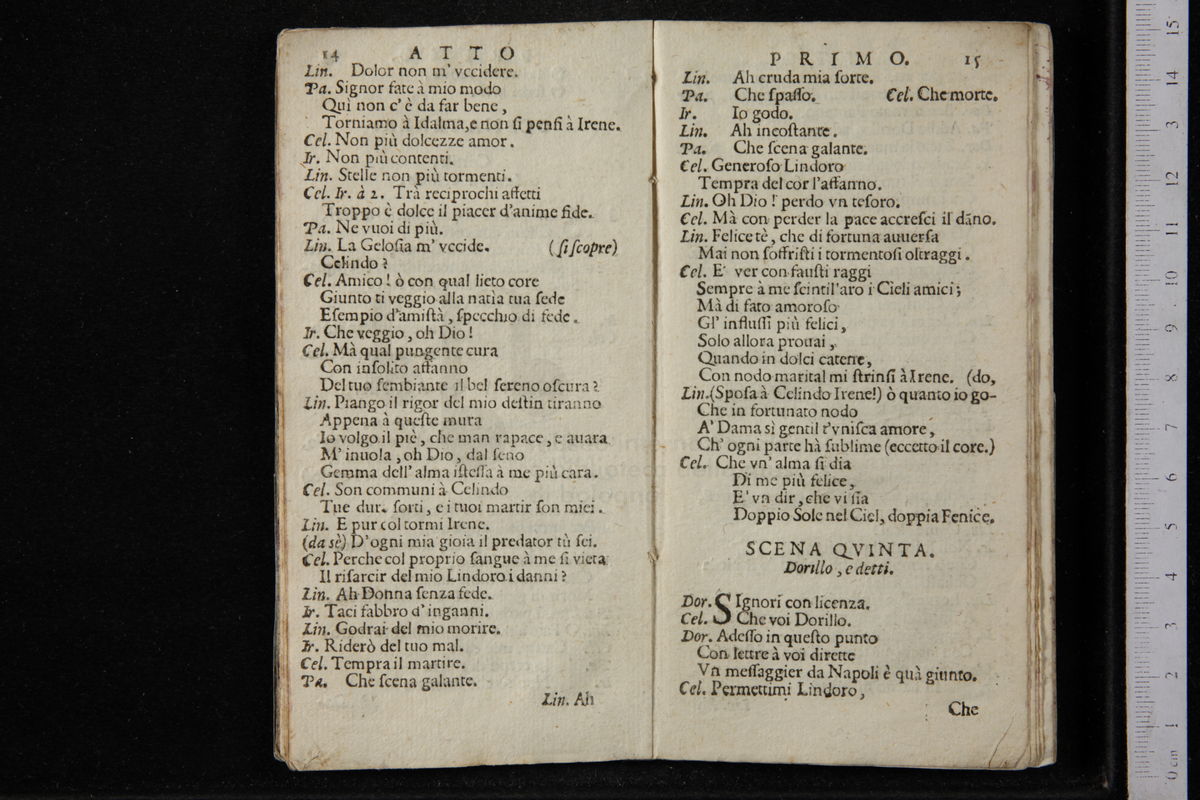 14 ATTO
Lin. Dolor non m' vccidere.
Pa. Signor fate à mio modo
Qui non c' è da far bene,
Torniamo à Idalma,e non ſi penſi à Irene.
Cel. Non più dolcezze amor.
Ir. Non più contenti.
Lin. Stelle non più tormenti.
Cel. Ir. à 2. Trà reciprochi affetti
Troppo è dolce il piacer d'anime fide.
Pa. Ne vuoi di più.
Lin. La Geloſia m' vccide. (ſi ſcopre)
Celindo?
Cel. Amico! ò con qual lieto core
Giunto ti veggio alla natìa tua ſede
Eſempio d'amiſtà, ſpecchio di fede.
Ir. Che veggio, oh Dio!
Cel. Mà qual pungente cura
Con inſolito affanno
Del tuo ſembiante il bel ſereno oſcura?
Lin. Piango il rigor del mio deſtin tiranno
Appena à queſte mura
Io volgo il piè, che man rapace, e auara
M' inuola, oh Dio, dal ſeno
Gemma dell' alma iſteſſa à me più cara.
Cel. Son communi à Celindo
Tue dure ſorti, e i tuoi martir ſon miei.
Lin. E pur col tormi Irene.
(da sè) D'ogni mia gioia il predator tù ſei.
Cel. Perche col proprio ſangue à me ſi vieta
Il riſarcir del mio Lindoro i danni?
Lin. Ah Donna ſenza fede.
Ir. Taci fabbro d' inganni.
Lin. Godrai del mio morire.
Ir. Riderò del tuo mal.
Cel. Tempra il martire.
Pa. Che ſcena galante.
Lin. Ah
PRIMO. 15
Lin. Ah cruda mia ſorte.
Pa. Che ſpaſſo. Cel. Che morte.
Ir. Io godo.
Lin. Ah incoſtante.
Pa. Che ſcena galante.
Cel. Generoſo Lindoro
Tempra del cor l'affanno.
Lin. Oh Dio! perdo vn teſoro.
Cel. Mà con perder la pace accreſci il dãno.
Lin. Felice tè, che di fortuna auuerſa
Mai non ſoffriſti i tormentoſi oltraggi.
Cel. E' ver con fauſti raggi
Sempre à me ſcintil'aro i Cieli amici;
Mà di fato amoroſo
Gl' influſſi più felici,
Solo allora prouai,
Quando in dolci catene,
Con nodo marital mi ſtrinſi à Irene. (do,
Lin.(Spoſa à Celindo Irene!) ò quanto io go-
Che in fortunato nodo
A' Dama sì gentil t'vniſca amore,
Ch' ogni parte hà ſublime (eccetto il core.)
Cel. Che vn' alma ſi dia
Di me più felice,
E' vn dir, che vi ſia
Doppio Sole nel Ciel, doppia Fenice.
SCENA QVINTA.
Dorillo, e detti.
Dor. SIgnori con licenza.
Cel. Che voi Dorillo.
Dor. Adeſſo in queſto punto
Con lettre à voi dirette
Vn meſſaggier da Napoli è quà giunto.
Cel. Permettimi Lindoro,
Che
0 cm 1 2 3 4 5 6 7 8 9 10 11 12 13 14 15